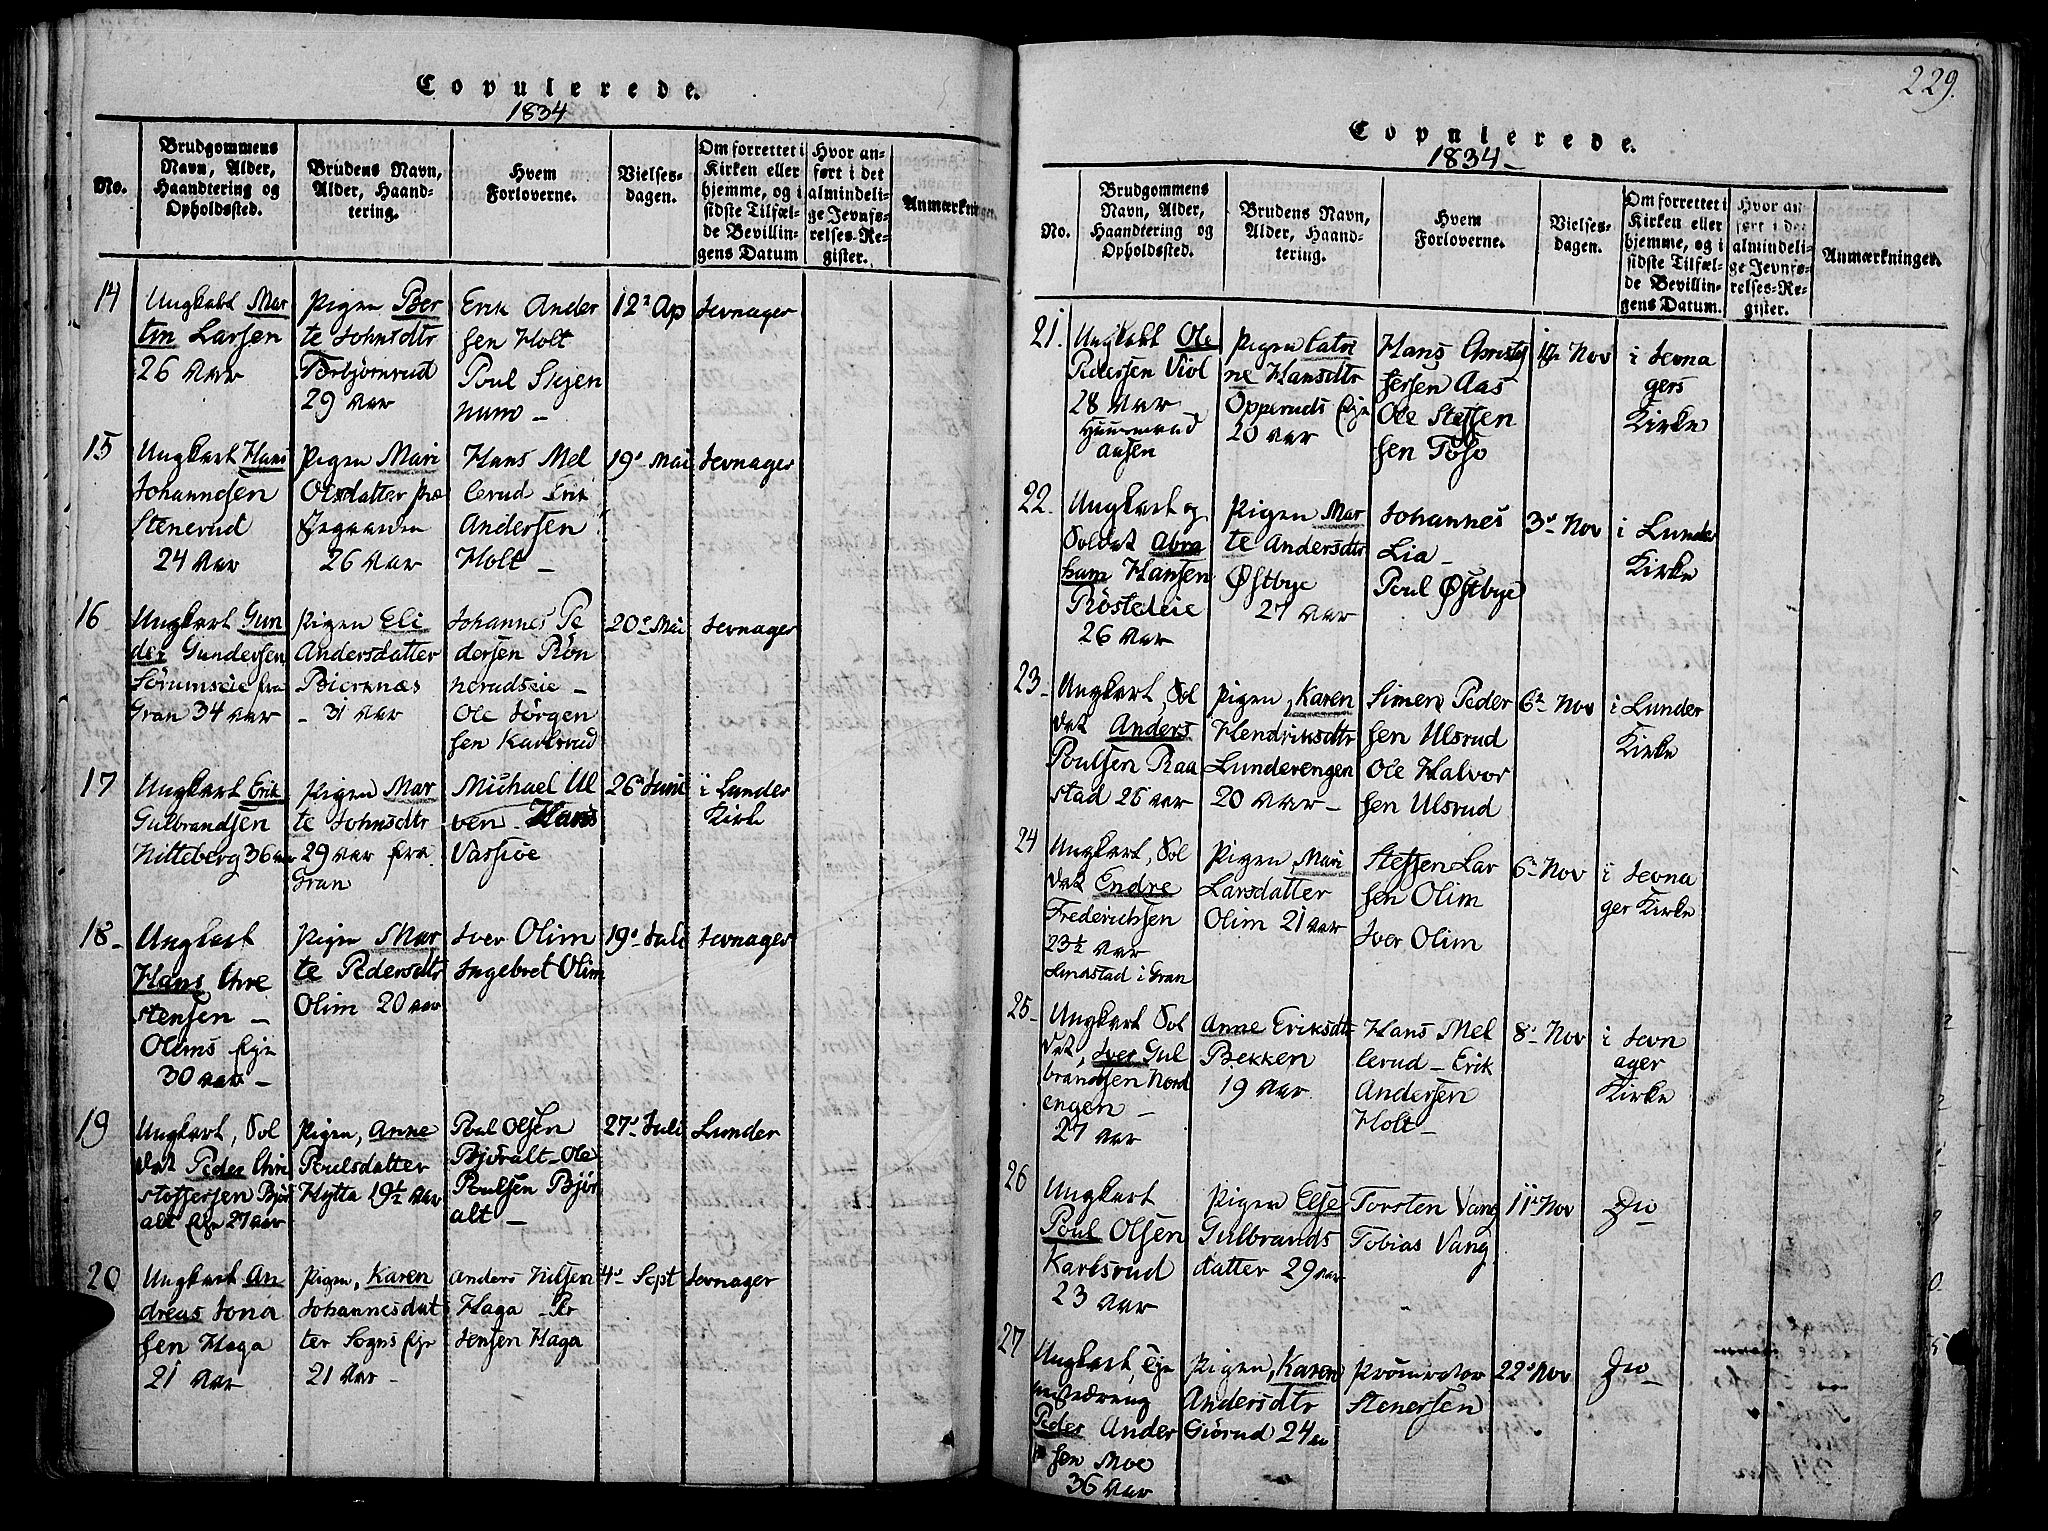 Copulerede.
1834
No.
Brudgommens
Navn, Alder,
Haandtering og
Opholdssted.
Brudens Navn,
Alder, Haand-
tering.
Hvem
Forloverne.
Vielses-
dagen.
Om forrettet i
Kirken eller
hjemme, og i
sidste Tilfæl-
de Bevillin-
gens Datum
Hvor an-
ført i det
almindeli-
ge Jevnfø-
relses-Re-
gister.
Anmærkninger.
14
Ungkarl Mar
tin Larsen
26 Aar
Pigen Ber
te Johnsdtr
Torbjørnrud
29 Aar
Erik Ander
sen Holt
Poul Skjen
num –
12te Ap
Jevnager
15
Ungkarl Hans
Johannesen
Stenerud
24 Aar
Pigen Mari
Olsdatter
26 Aar
Hans Mel
lerud Erik
Andersen
Holt –
19de Mai
Jevnager
16
Ungkarl Gun
der Gundersen
Sørumseie fra
Gran 34 Aar
Pigen Eli
Andersdatter
Bierknæs
– 31 Aar
Johannes Pe
dersen Røn
nerudseie –
Ole Jörgen
sen Karlsrud
20de Mai
Jevnager
17
Ungkarl Erik
Gulbrandsen
Nitteberg 36 Aar
Pigen Mar
te Johnsdtr
29 Aar fra
Gran
Michael Ul
ven – Hans
Vassjøe
26de Juni
i Lunder
Kirke
18 –
Ungkarl
Hans Chre
stensen –
Olims Eje
30 Aar –
Pigen Mar
te Pedersdtr
Olim 20 Aar
Iver Olim
Ingebret Olim
19de Juli
Jevnager
19
Ungkarl, Sol
dat Peder Chri
stoffersen Bjør
alt Eje 27 Aar
Pigen, Anne
Poulsdatter
Hytta 19½ Aar
Poul Olsen
Bjøralt – Ole
Poulsen Bjør
alt –
27de Juli
Lunder
20
Ungkarl An
dreas Jona
sen Haga
21 Aar
Pigen, Karen
Johannesdat
ter Sogns Eje
21 Aar –
Anders Nilsen
Haga – Per
Jensen Haga
4de Sept
Jevnager
229.
Copulerede.
1834 –
No.
Brudgommens
Navn, Alder,
Haandtering og
Opholdssted.
Brudens Navn,
Alder, Haand-
tering.
Hvem
Forloverne.
Vielses-
dagen.
Om forrettet i
Kirken eller
hjemme, og i
sidste Tilfæl-
de Bevillin-
gens Datum.
Hvor an-
ført i det
almindeli-
ge Jevnfø-
relses-Re-
gister.
Anmærkninger.
21.
Ungkarl Ole
Pedersen Viol
28 Aar –
aasen
Pigen Catri
ne Hansdtr
Opperuds Eje
20 Aar
Hans Christof
fersen Aas
Ole Steffen
sen Töso
Nov
i Jevna
gers
Kirke
22.
Ungkarl og
Soldat Abra
ham Hansen
Rösteleie
26 Aar
Pigen Mar
te Andersdtr
Østbye
27 Aar
Johannes
Lia –
Poul Østbye
3de Nov
i Lunder
Kirke
23 –
Ungkarl, Sol
dat Anders
Poulsen Raa
stad 26 Aar
Pigen, Karen
Hendriksdtr
Lunderengen
20 Aar –
Simen Peder
sen Ulsrud
Ole Halvor
sen Ulsrud
6te Nov
i Lunder
Kirke
24
Ungkarl, Sol
dat Endre
Frederichsen
23½ Aar
i Gran
Pigen, Mari
Larsdatter
Olim 21 Aar
Steffen Lar
sen Olim
Iver Olim
6te Nov
i Jevna
ger Kirke
25 –
Ungkarl Sol
dat, Iver Gul
brandsen Nord
engen –
27 Aar
Anne Eriksdtr
Bekken
19 Aar
Hans Mel
lerud – Erik
Andersen
Holt –
8de Nov
i Jevn
ager
Kirke
26
Ungkarl
Poul Olsen
Karlsrud
23 Aar
Pigen Else
Gulbrands
datter 29 Aar
Torsten Vang
Tobias Vang
11te Nov
Do
27
Ungkarl,
Peder Ander
sen Moe
36 Aar
Pigen, Karen
Andersdtr
Giörud 24 Aar
Procurator
Stenersen
22de Nov
Do